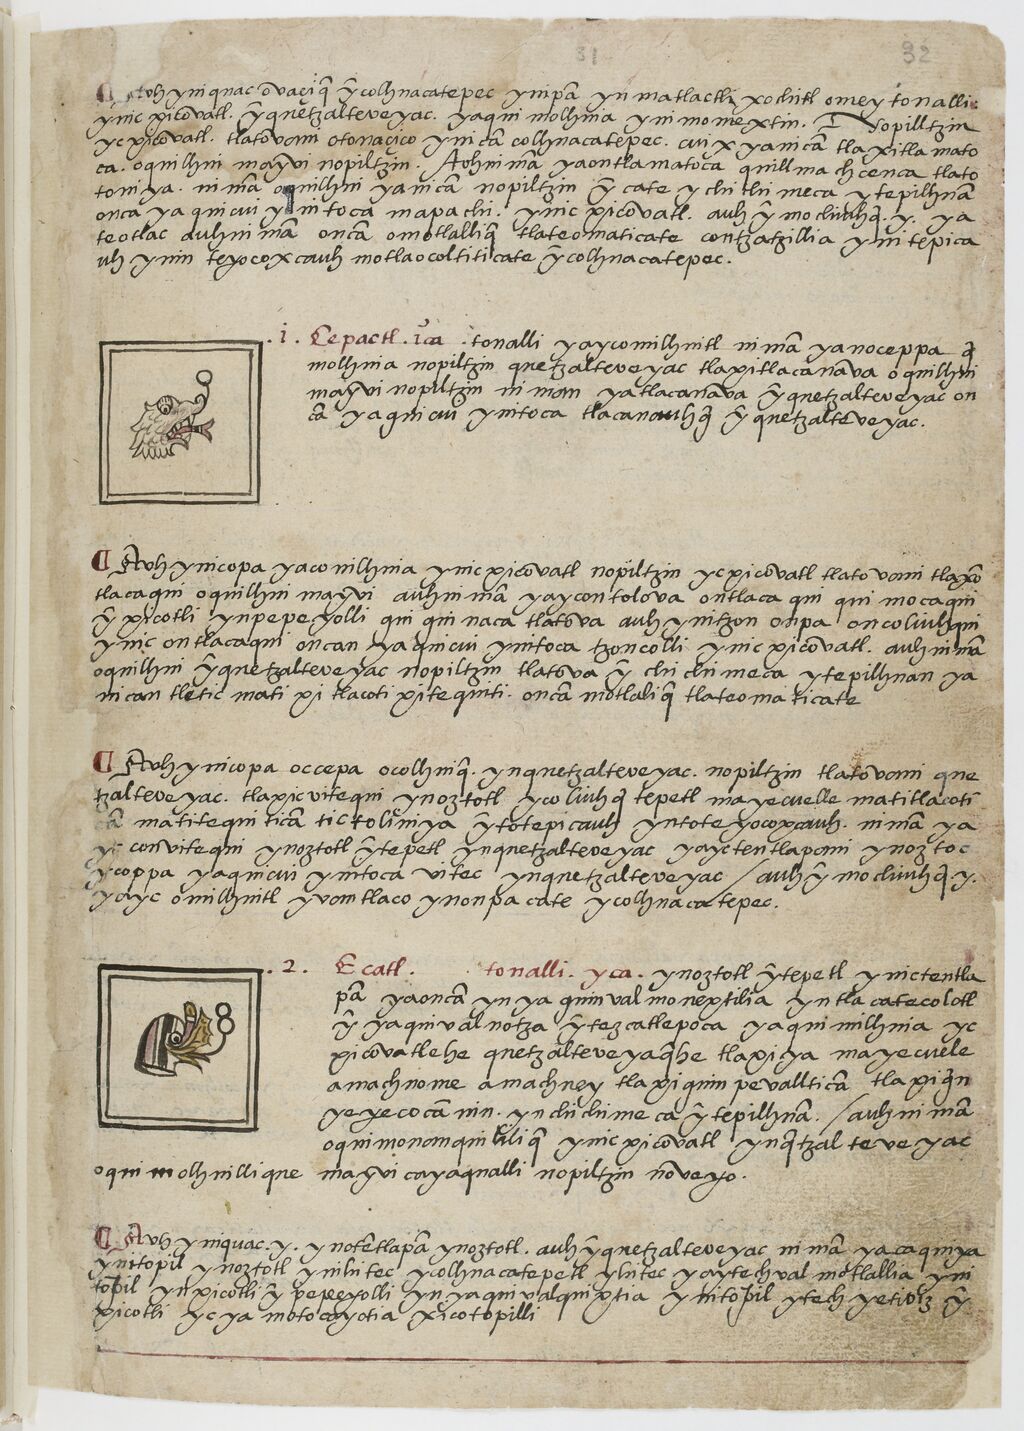 31 32
Auh yniquac ōvaçiq̄ ȳcolhuacatepec ynipā yn matlactli xochitl omey tonalli
ynic xicovatl. ȳquetzalteveyac. yaqui molhuia yni momextin. Nopilltzin
yc xicovatl. tlatovani otonaçico ynicā colhuacatepec. cuix yanicā tlaxitlamato
ca. oquilhui mayvi nopiltzin. Auhnimā yaontlamatoca quillmachcenca tlato
toniya. nimā oquilhui yanicā nopiltzin ȳ cate y chichimeca ytepilhuā
onca yaquicui ynitoca mapachi. ynic xicovatl. auh ȳ mochiuhq̄. y. ya
teotlac auhnimā oncā omotlalliq̄ tlateomaticate contzatzillia ynitepica
uh ynin teyocoxcauh motlaocoltiticate ȳcolhuacatepec.
.i. Cepactl. ica tonalli yaycomilhuitl nimā yanoceppa q̄
molhuia nopiltzin quetzalteveyac tlaxitlacanava oquilhui
mayvi nopiltzin niman yatlacanava ȳquetzalteveyac on
cā yaquicui ynitoca tlacanauhq̄ ȳquetzalteveyac.
Auh ynicopa yaconilhuia ynic xicovatl nopiltzin yc xicovatl tlatovani tlaxō
tlacaqui oquilhui mayvi auhnimā yaycontolova ontlacaqui quimocaqui
ȳ xicotli ynpepeyolli quiquinaca tlatova auh ynitzon onpa oncoliuhqui
ynic ontlacaqui oncan yaquicui ynitoca tzoncolli ynic xicovatl. auhnimā
oquilhui ȳquetzalteveyac nopiltzin tlatova ȳ chichimeca ytepilhuan ya
nican tletic mati xitlacoti xitequiti. oncā motlaliq̄ tlateomaticate
Auh ynicopa occepa ocolhuiq̄. ynquetzalteveyac. nopiltzin tlatovani que
tzalteveyac. tlaxicvitequi ynoztotl ycoliuhq̄ tepetl mayecuelle matitlacoti
cā matitequiticā tictoliniya ȳtotepicauh yntoteyocoxcauh. nimā ya
yc convitequi ynoztotl ȳtepetl ynquetzalteveyac yayctentlapani ynoztoc
ycoppa yaquicui ynitoca vitec ynquetzalteveyac / auh ȳ mochiuhq̄ y.
yayc omilhuitl yvantlaco ynonpa cate ycolhuacatepec.
.2. Ecatl. tonalli. yca. ynoztotl ȳtepetl ynictentla
pā yaoncā ynya quinvalmonextilia yntlacatecolotl
ȳ yaquivalnotza ȳtezcatlepoca yaquimilhuia yc
xicovatlehe quetzalteveyaq̄he tlaxiya mayecuele
amachnome amachney tlaxiquinpevallticā tlaxiq̄n
yeyecocā nin. ynchichimeca ȳtepilhuā. / auhnimā
oquimonanquililiq̄ ynic xicovatl ynq̄tzalteveyac
oquimolhuillique mayvi cayaqualli nopiltzin noveyo.
Auh yniquac. y. ynotētlapā ynoztotl. auh ȳquetzalteveyac nimā yacaquiya
ynitopil ynoztotl ynihitec ycolhuacatepetl yhitec yaytechvalmotlallia yni
topil ynxicotli ȳ pepeyolli ynyaquivalquixtia ynitopil ytech yetivitz ȳ
xicotli yc ya motocayotia xicotopilli